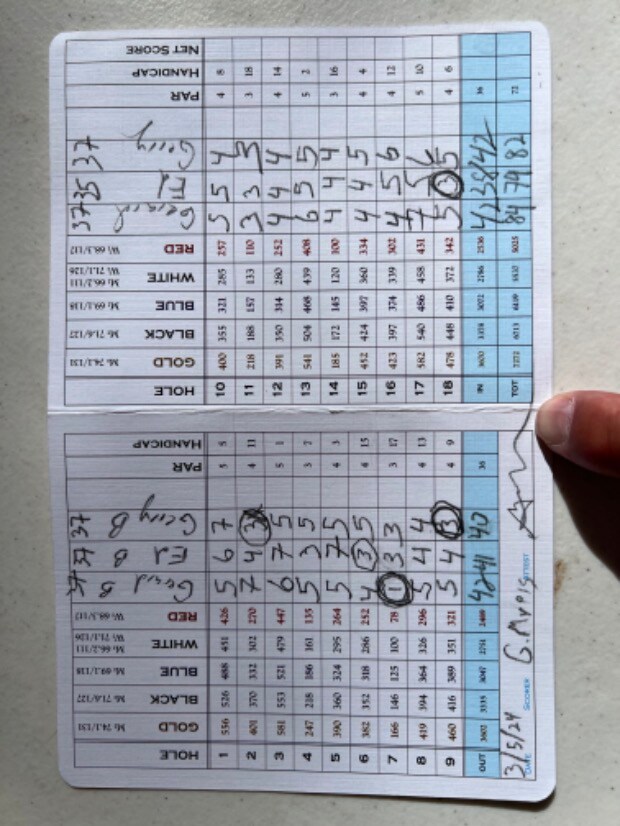 HOLE 1 2 3 4 5 6 7 8 9 OUT
GOLD M: 74.2/131 556 401 581 247 390 382 166 419 460 3602
BLACK M: 71.6/127 526 370 553 218 360 352 146 394 416 3335
BLUE M: 69.1/118 488 332 521 186 324 318 125 364 389 3047
WHITE M: 66.2/111 W: 71.1/126 451 302 479 161 295 286 100 326 351 2751
RED W: 68.3/117 426 270 447 135 264 252 78 296 321 2489
37 Gerard B 5 7 6 5 5 4 1 5 5 42
37 Ed B 6 4 7 3 7 3 3 4 4 41
37 Gerry B 7 3 5 5 5 5 3 4 3 40
PAR 5 4 5 3 4 4 3 4 4 36
HANDICAP 5 11 1 7 3 15 17 13 9
DATE 3/5/24 SCORER G. Myers ATTEST
HOLE 10 11 12 13 14 15 16 17 18 IN TOT
GOLD M: 74.2/131 400 218 391 541 185 452 423 582 478 3670 7272
BLACK M: 71.6/127 355 188 350 504 172 424 397 540 448 3378 6713
BLUE M: 69.1/118 321 157 314 468 145 397 374 486 410 3072 6119
WHITE M: 66.2/111 W: 71.1/126 285 133 280 439 120 360 339 458 372 2786 5537
RED W: 68.3/117 257 110 252 408 100 334 302 431 342 2536 5025
37 Gerard 5 3 4 6 4 4 4 7 5 42 84
35 Ed 5 3 4 5 4 4 5 5 3 38 79
37 Gerry 4 3 4 5 4 5 6 6 5 42 82
PAR 4 3 4 5 3 4 4 5 4 36 72
HANDICAP 8 18 14 2 16 4 12 10 6
NET SCORE